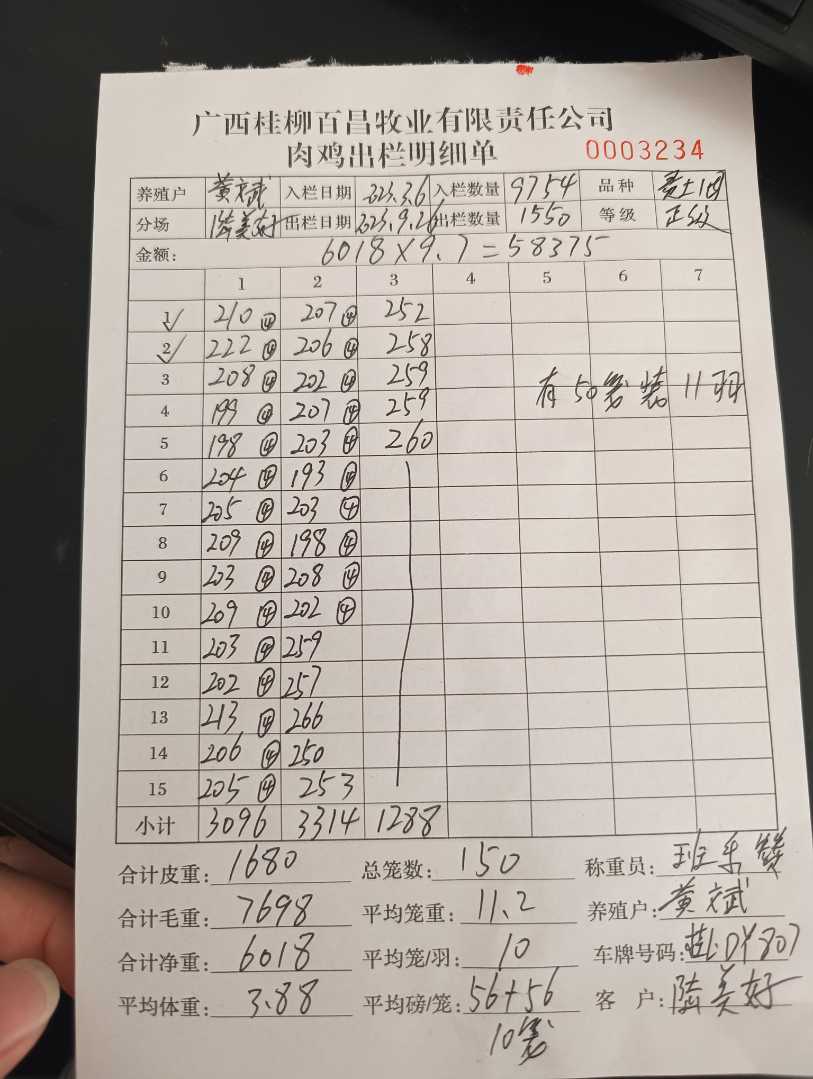 广西桂柳百昌牧业有限责任公司
肉鸡出栏明细单 0003234
养殖户 黄文斌 入栏日期 2023.3.6 入栏数量 9754 品种
分场 陆美好 出栏日期 2023.9.26 出栏数量 1550 等级 正级
金额: 6018×9.7=58375
1 2 3 4 5 6 7
1 210 ④ 207 ④ 252
2 222 ④ 206 ④ 258
3 208 ④ 202 ④ 259 有50笼装11羽
4 199 ④ 207 ④ 259
5 198 ④ 203 ④ 260
6 204 ④ 193 ④
7 205 ④ 203 ④
8 209 ④ 198 ④
9 203 ④ 208 ④
10 209 ④ 202 ④
11 203 ④ 259
12 202 ④ 257
13 213 ④ 266
14 206 ④ 250
15 205 ④ 253
小计 3096 3314 1288
合计皮重: 1680 总笼数: 150 称重员:
合计毛重: 7698 平均笼重: 11.2 养殖户: 黄文斌
合计净重: 6018 平均笼/羽: 10 车牌号码: 桂LDY807
平均体重: 3.88 平均磅/笼: 56+56 客 户: 陆美好
10笼